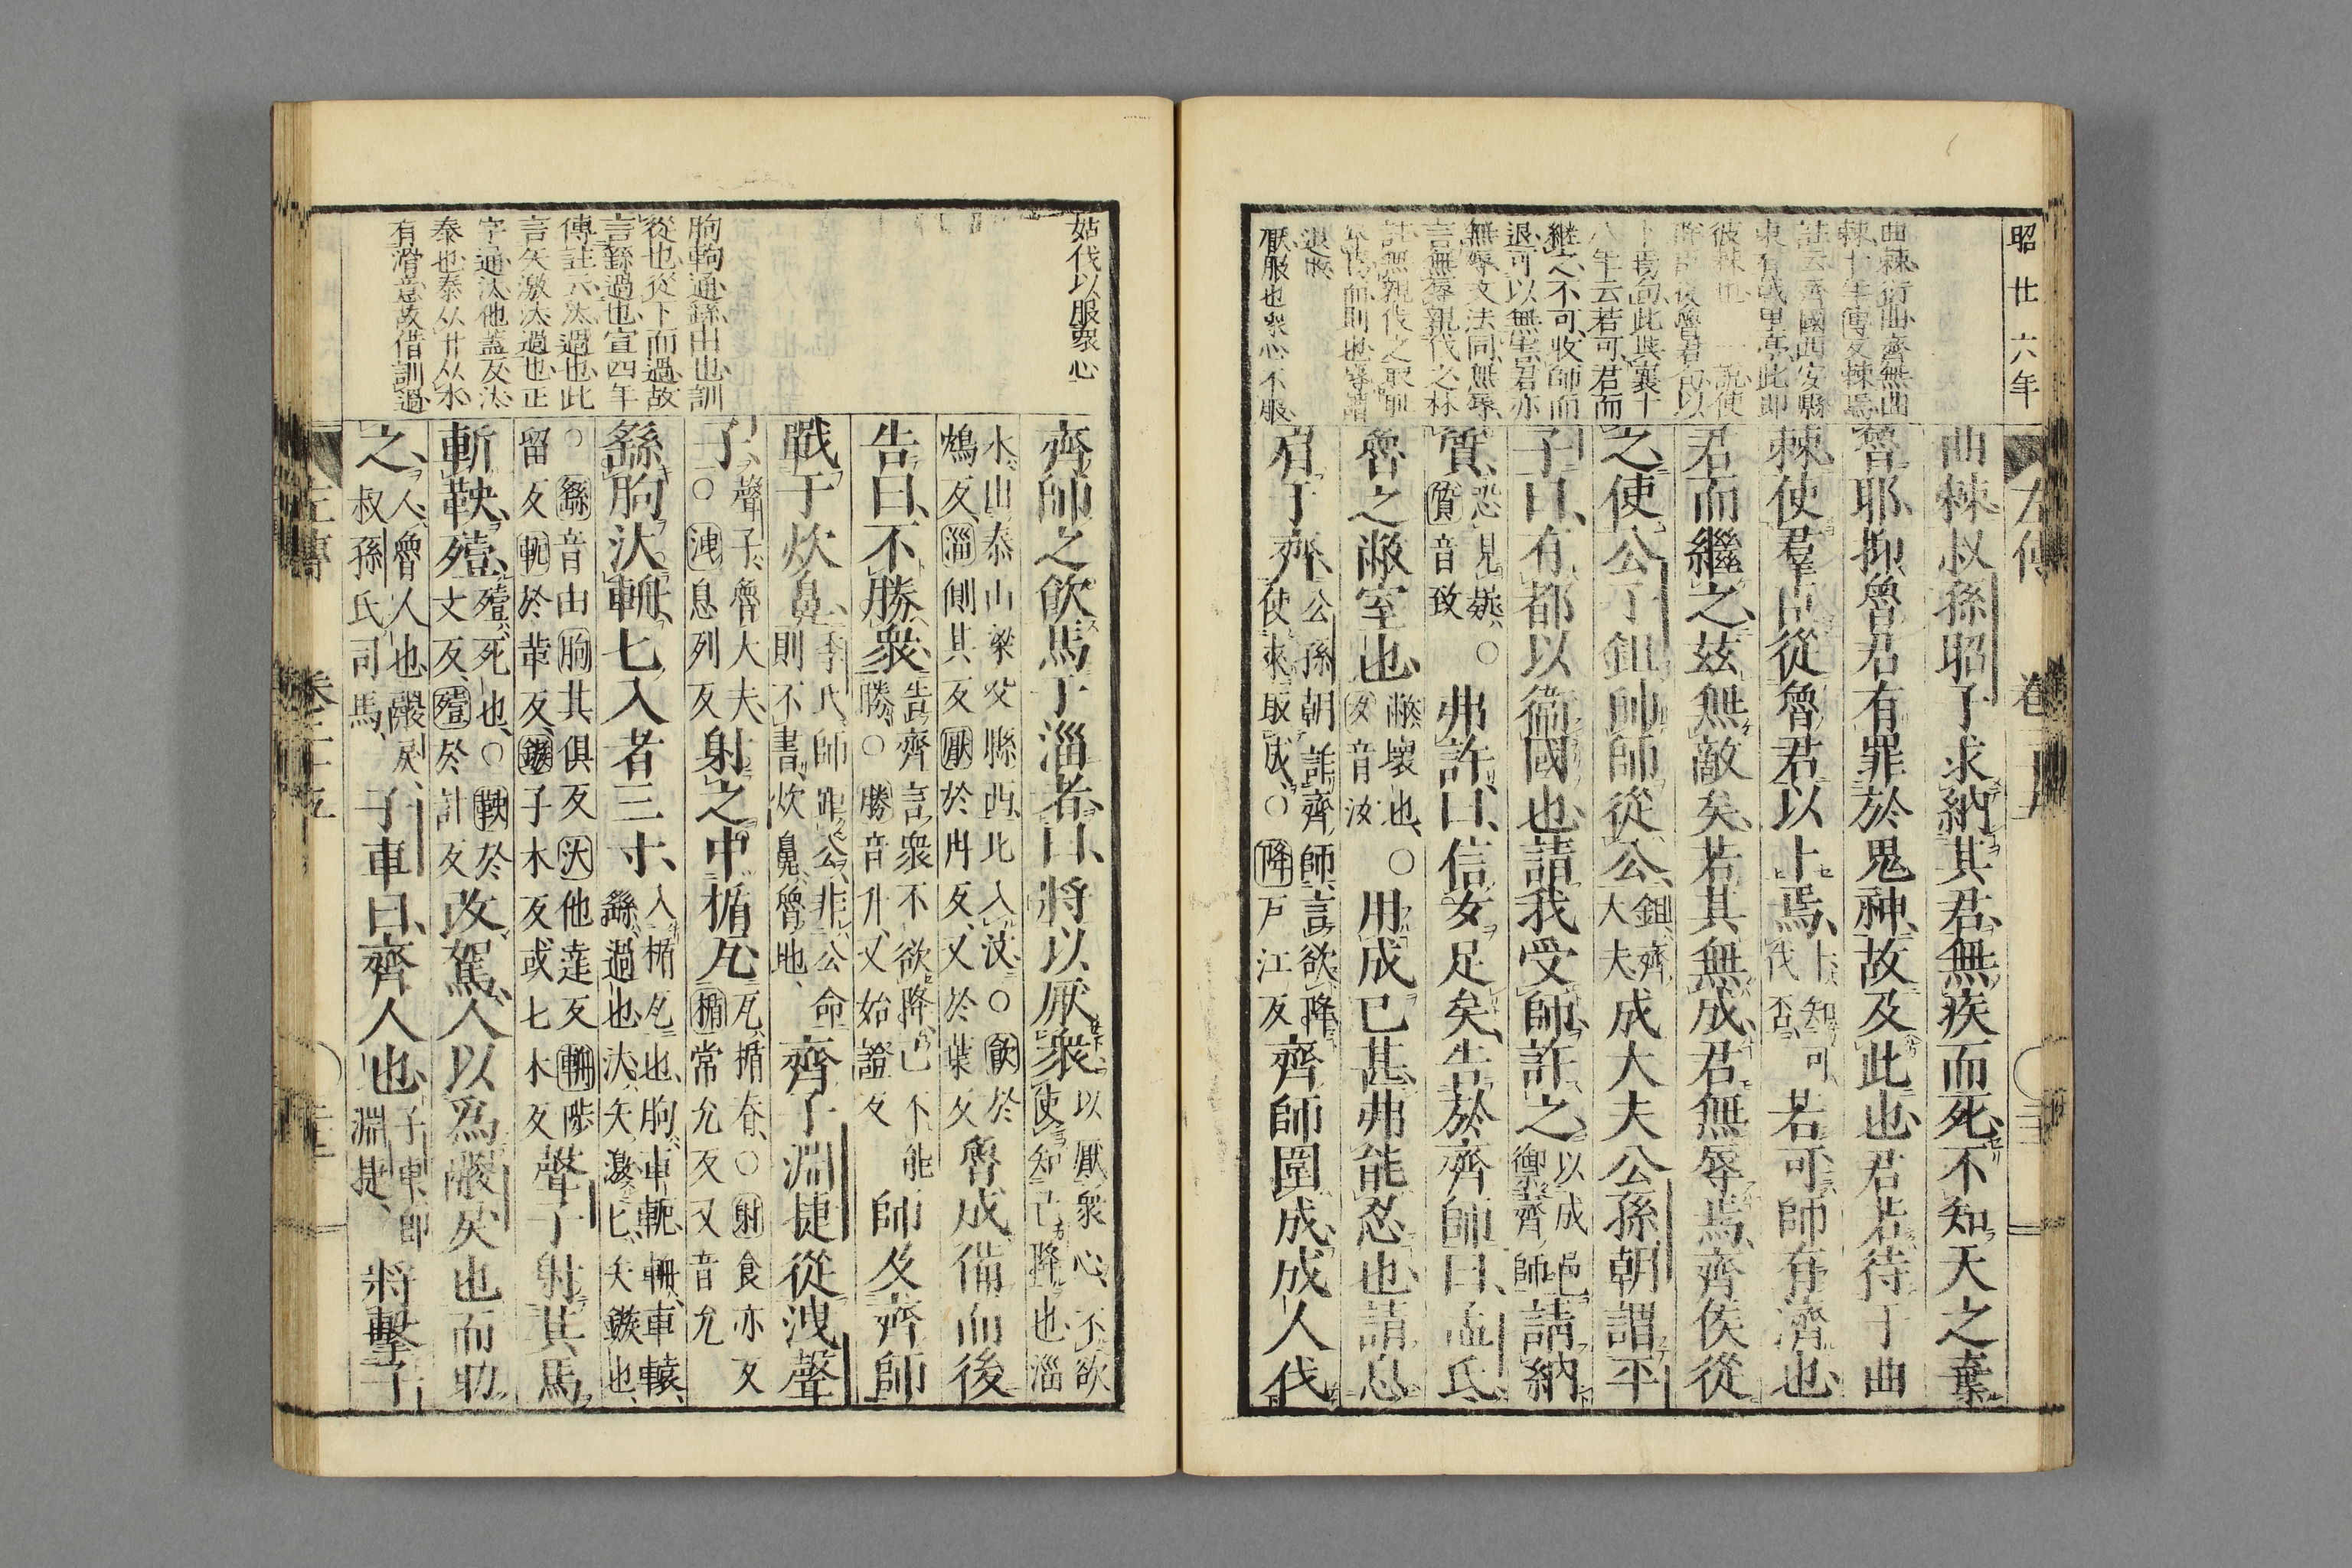 昭廿六年
左傳 卷二十五
曲棘叔孫昭子求納其君無疾而死不知天之棄
魯耶抑魯君有罪於鬼神故及此也君若待于曲
棘使羣臣從魯君以卜焉卜知可伐否若可師有濟也
君而繼之茲無敵矣若其無成君無辱焉齊侯從
之使公子鉏帥師從公鉏齊大夫成大夫公孫朝謂平
子曰有都以衛國也請我受師許之以成邑禦齊師請納
質恐見疑○質音致弗許曰信女足矣告於齊師曰孟氏
魯之敝室也敝壞也○女音汝用成已甚弗能忍也請息
肩于齊公孫朝詐齊師言欲降使來取成○降戶江反齊師圍成成人伐
曲棘衍曲齊無曲
棘十年傳反棘焉
註云齊國西安縣
東有戟里亭此即
彼棘也一說使
卜焉句此與襄十
八年云若可君而
繼之不可收師而
退可以無害君亦
無辱文法同無辱
言無辱親伐之林
厭服也衆心不服
姑伐以服衆心
齊師之飮馬于淄者曰將以厭衆以厭衆心不欲使知己降也淄
水出泰山梁父縣西北入汶○飮於鴆反淄側其反厭於冉反又於葉反魯成備而後
告曰不勝衆告齊言衆不欲降己不能勝○勝音升又始證反師及齊師
戰于炊鼻季氏師距公非公命則不書炊鼻魯地齊子淵捷從洩聲
子聲子魯大夫○洩息列反射之中楯瓦瓦楯脊○射食亦反楯常允反又音允
繇朐汰輈匕入者三寸入楯瓦也朐車軛輈車轅繇過也汰矢激匕矢鏃也
○繇音由朐其俱反汰他達反輈陟留反軛於革反鏃子木反或七木反聲子射其馬
斬鞅殪殪死也○鞅於丈反殪於計反改駕人以爲鬷戾也而助
之人魯人也鬷戾叔孫氏司馬子車曰齊人也子車即淵捷將擊子
朐軥通繇由也訓
從也從下而過故
言繇過也宣四年
傳註云汰過也此
言矢激汰過也正
字通汰他蓋反汏
泰也泰从廾从水
有滑意故借訓過
左傳 卷二十五